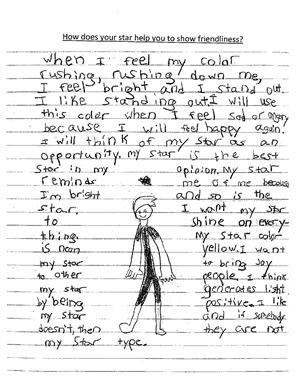 How does your star help you to show friendliness?
when I feel my color
rushing, rushing down me,
I feel bright and I stand out.
I like standing out. I will use
this color when I feel sad or angry
because I will feel happy again!
I will think of my star as an
opportunity. my star is the best
star in my opinion. My star
reminds me of me because
I'm bright and so is the
star, I want my star
to shine on every-
thing. My star color
is neon yellow. I want
my star to bring joy
to other people, I think
my star generates light
by being positive. I like
my star and if somebody
doesn't, then they are not
my star type.